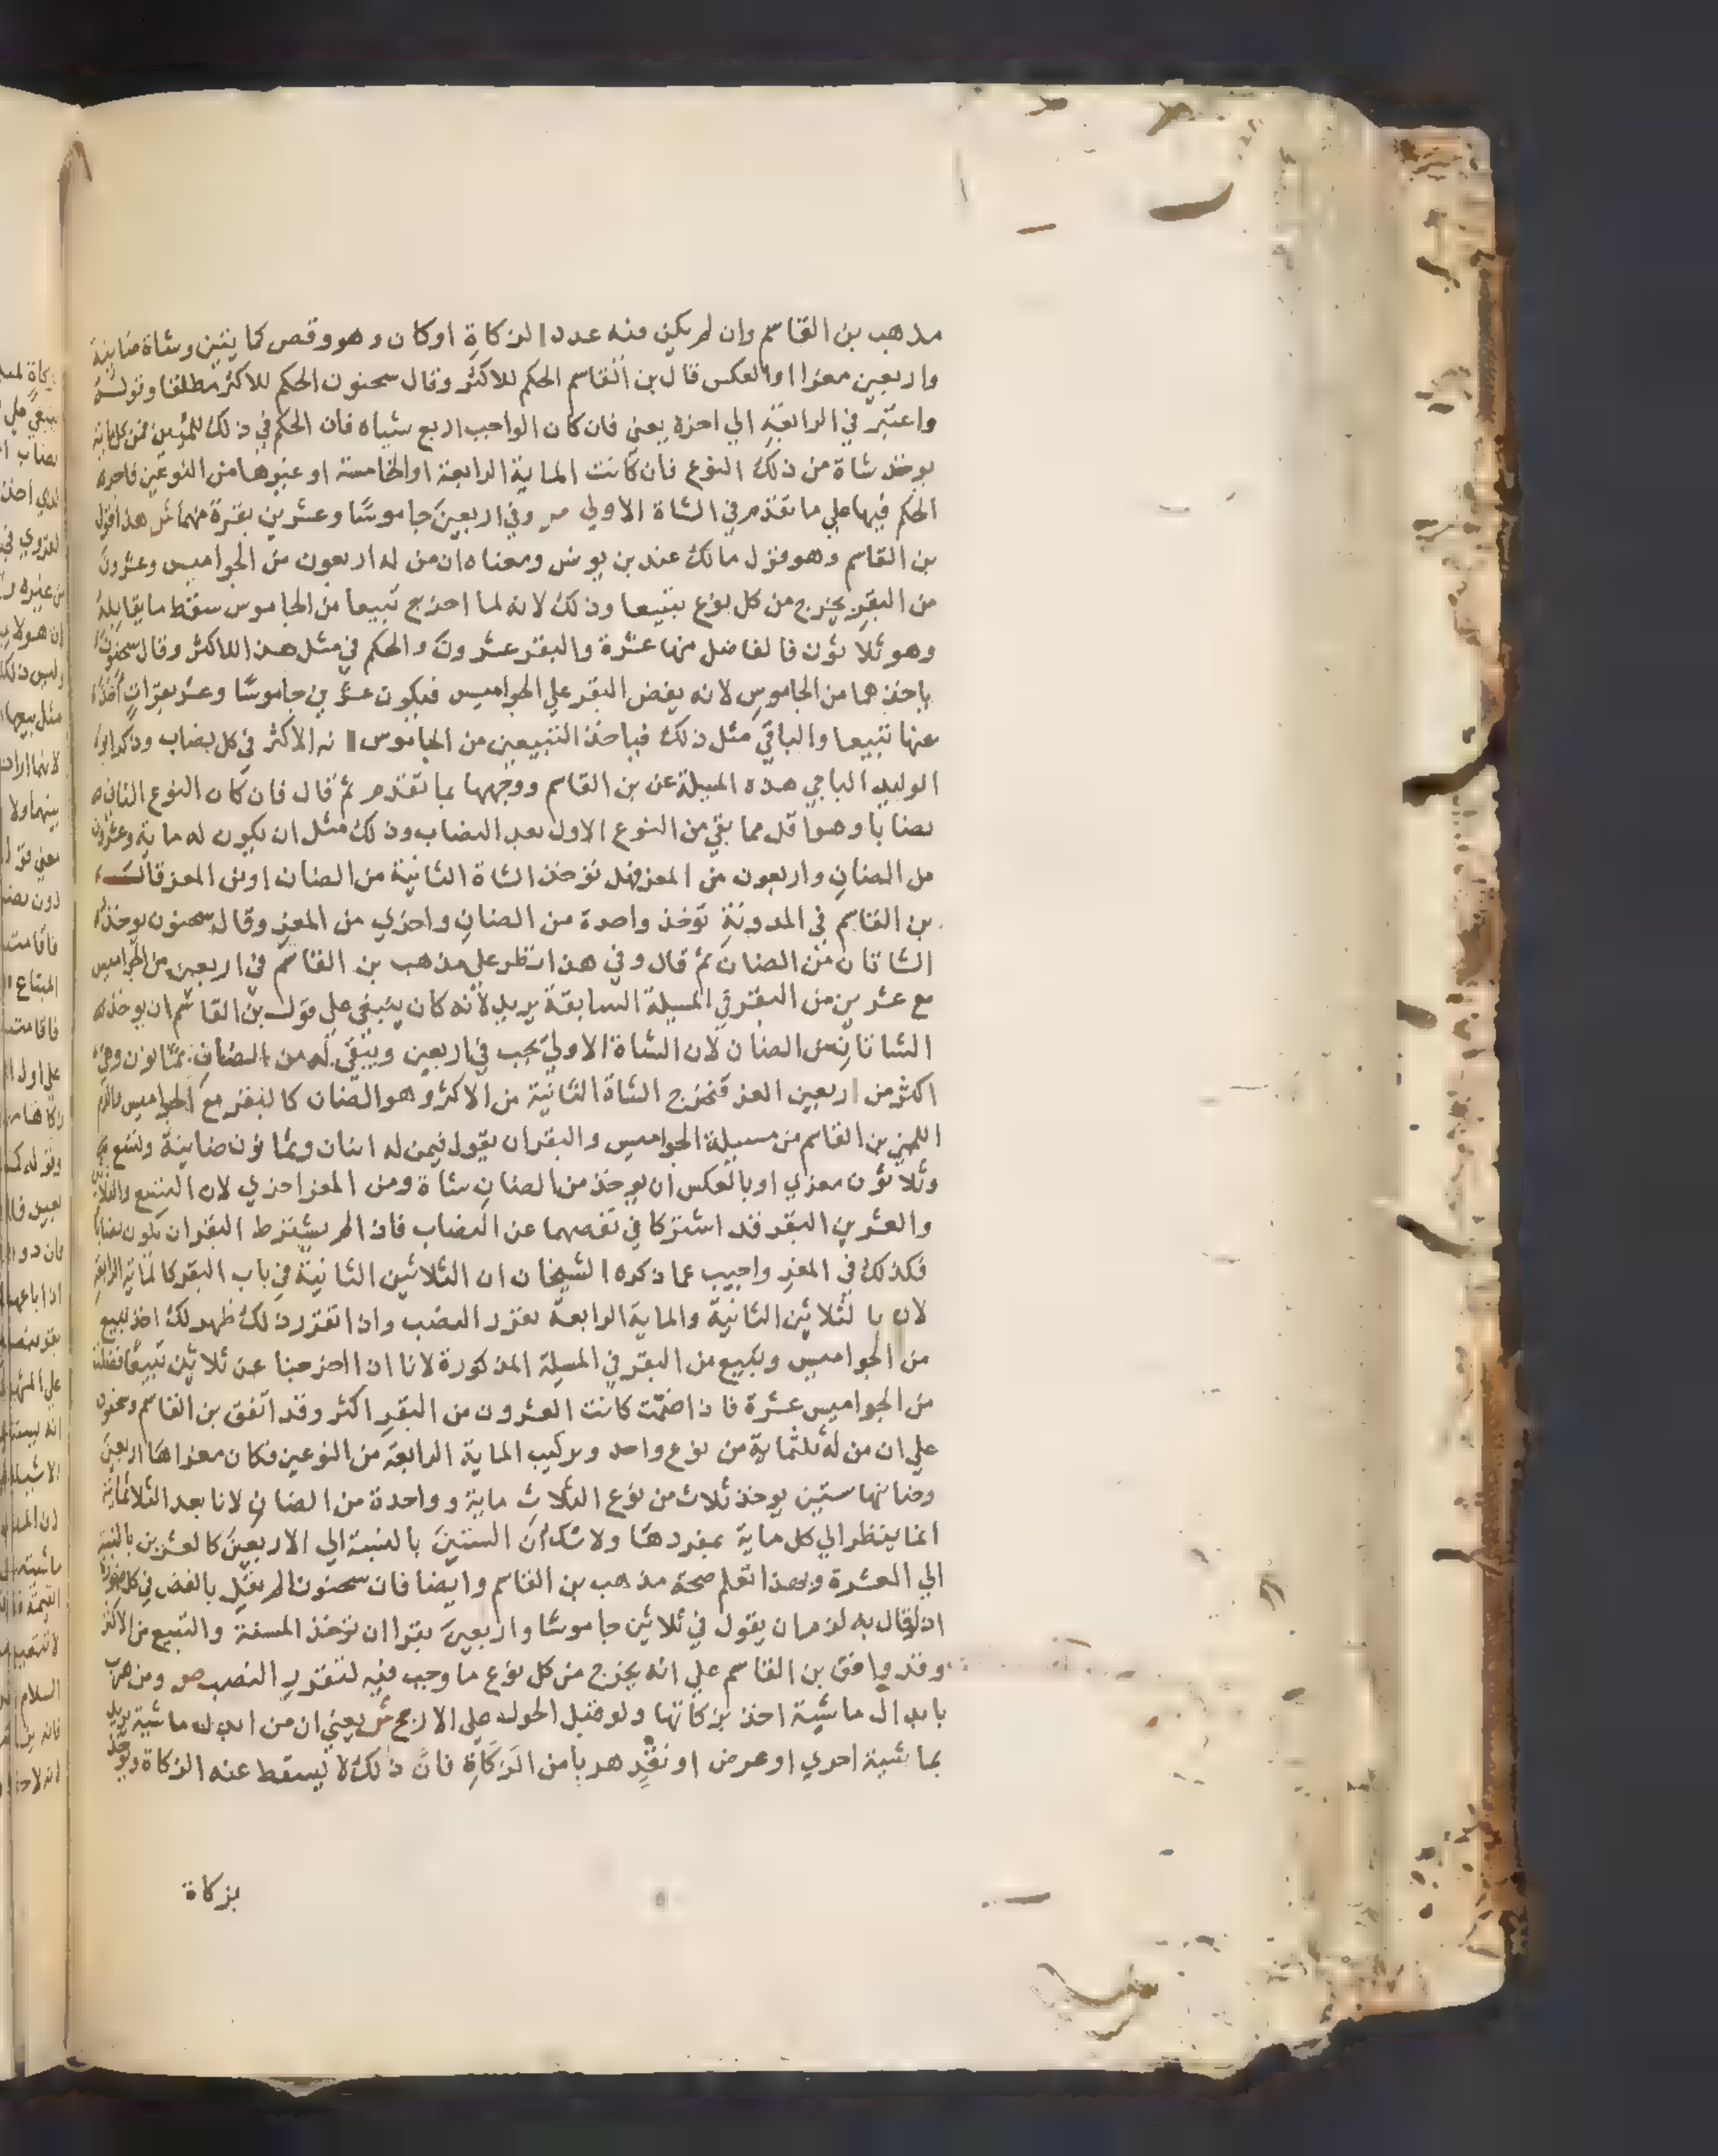 مذهب بن القاسم وان لم يكن منه عدد الزكاة او كان وهو وقص كمايتين وشاة ضاينة
واربعين معزا او بالعكس قال بن القاسم الحكم للاكثر وقال سحنون الحكم للاكثر مطلقا وقوله
واعتبر في الرابعة الي اخره يعني فان كان الواجب اربع شياه فان الحكم في ذلك للمئين فمن كل ماية
يوخذ شاة من ذلك النوع فان كانت الماية الرابعة او الخامسة او غيرها من النوعين فاجره
الحكم فيها علي ما تقدم في الشاة الاولي ص وفي اربعين جاموسا وعشرين بقرة منهما ش هذا قول
بن القاسم وهو قول مالك عند بن يونس ومعناه ان من له اربعون من الجواميس وعشرون
من البقر يخرج من كل نوع تبيعا وذلك لانه لما اخرج تبيعا من الجاموس سقط ما يقابله
وهو ثلاثون فالفاضل منها عشرة والبقر عشرون والحكم في مثل هذا للاكثر وقال سحنون
ياخذهما من الجاموس لانه يفض البقر علي الجواميس فيكون عشرين جاموسا وعشر بقرات
عنها تبيعا والباقي مثل ذلك فياخذ التبيعين من الجاموس لانه الاكثر في كل نصاب وذكر ابو
الوليد الباجي هذه المسيلة عن بن القاسم ووجهها بما تقدم ثم قال فان كان النوع الثاني
نصابا وهو اقل مما بقي من النوع الاول بعد النصاب وذلك مثل ان يكون له ماية وعشرون
من الضان واربعون من المعز فهل توخذ الشاة الثانية من الضان او من المعز قال
بن القاسم في المدونة توخذ واحدة من الضان واخري من المعز وقال سحنون يوخذ
الشاتان من الضان ثم قال وفي هذا نظر علي مذهب بن القاسم في اربعين من الجواميس
مع عشرين من البقر في المسيلة السابقة يريد لانه كان ينبغي علي قول بن القاسم ان يوخذ
الشاتان من الضان لان الشاة الاولي تجب في اربعين ويبقي له من الضان ثمانون وهي
اكثر من اربعين المعز فتخرج الشاة الثانية من الاكثر وهو الضان كالبقر مع الجواميس والزم
اللخمي بن القاسم من مسيلة الجواميس والبقر ان يقول فيمن له اثنان وثمانون ضاينة وتسع
وثلاثون معزي او بالعكس ان يوخذ من الضان شاة ومن المعز اخري لان التسع والثلاثين
والعشرين البقر قد اشتركا في نقصهما عن النصاب فاذا لم يشترط البقر ان تكون نصابا
فكذلك في المعز واجيب عما ذكره الشيخان ان الثلاثين الثانية في باب البقر كالماية الرابعة
لان بالثلاثين الثانية والماية الرابعة تقرر النصب واذا تقرر ذلك ظهر لك اخذ تبيع
من الجواميس وتبيع من البقر في المسيلة المذكورة لانا اذا اخرجنا عن ثلاثين تبيعا فضلت
من الجواميس عشرة فاذا ضمت كانت العشرون من البقر اكثر وقد اتفق بن القاسم وسحنون
علي ان من له ثلثماية من نوع واحد وتركيب الماية الرابعة من النوعين فكان معزاها اربعين
وضانها ستين يوخذ ثلاث من نوع الثلاث ماية وواحدة من الضان لانا بعد الثلاثماية
انما ينظر الي كل ماية بمفردها ولا شك ان الستين بالنسبة الي الاربعين كالعشرين بالنسبة
الي العشرة وبهذا تعلم صحة مذهب بن القاسم وايضا فان سحنون لم يقل بالفض في كل صورة
اذ لو قال به لزم ان يقول في ثلاثين جاموسا واربعين بقرا ان توخذ المسنة والتبيع من الاكثر
وقد وافق بن القاسم علي انه يخرج من كل نوع ما وجب فيه لتقرر النصب ص ومن هرب
بابدال ماشية اخذ بزكاتها ولو قبل الحول علي الارجح ش يعني ان من ابدل ماشية يريد
بماشية اخري او عرض او نقد هربا من الزكاة فان ذلك لا يسقط عنه الزكاة ويوخذ
بزكاة